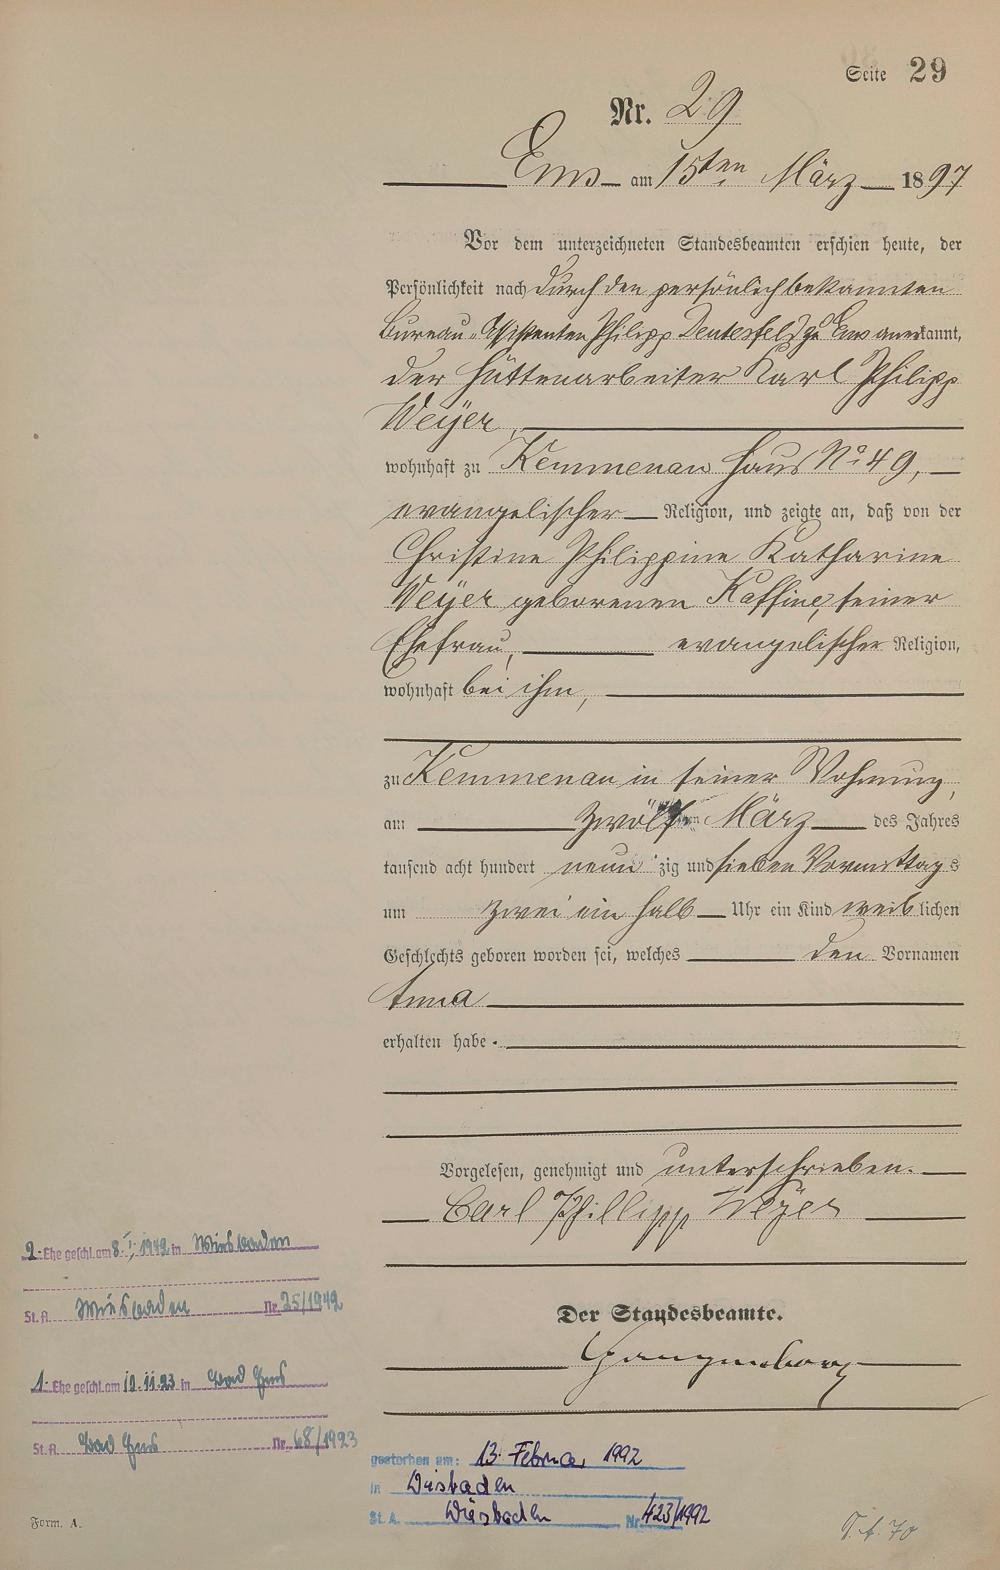 Seite 29
Nr. 29
Ems am 15ten März 1897
Vor dem unterzeichneten Standesbeamten erschien heute, der
Persönlichkeit nach durch den persönlich bekannten
Bureau-Assistenten Philipp zu Ems anerkannt,
der Hüttenarbeiter Karl Philipp
Weÿer,
wohnhaft zu Kemmenau Haus No 49,
evangelischer Religion, und zeigte an, daß von der
Christine Philippine Katharine
Weÿer geborenen Kaffine, seiner
Ehefrau, evangelischer Religion,
wohnhaft bei ihm,
zu Kemmenau in seiner Wohnung,
am zwölften März des Jahres
tausend acht hundert neunzig und sieben Vormittags
um zwei ein halb Uhr ein Kind weiblichen
Geschlechts geboren worden sei, welches den Vornamen
Anna
erhalten habe.
Vorgelesen, genehmigt und unterschrieben.
Carl Phillipp Weÿer
2. Ehe geschl. am 8.I.1942 in Wiesbaden
St. A. Wiesbaden Nr. 25/1942
Der Standesbeamte.
1. Ehe geschl. am 10.11.23 in Bad Ems
St. A. Bad Ems Nr. 68/1923
gestorben am: 13. Februar 1992
in Wiesbaden
St. A. Wiesbaden Nr. 423/1992
Form. A.